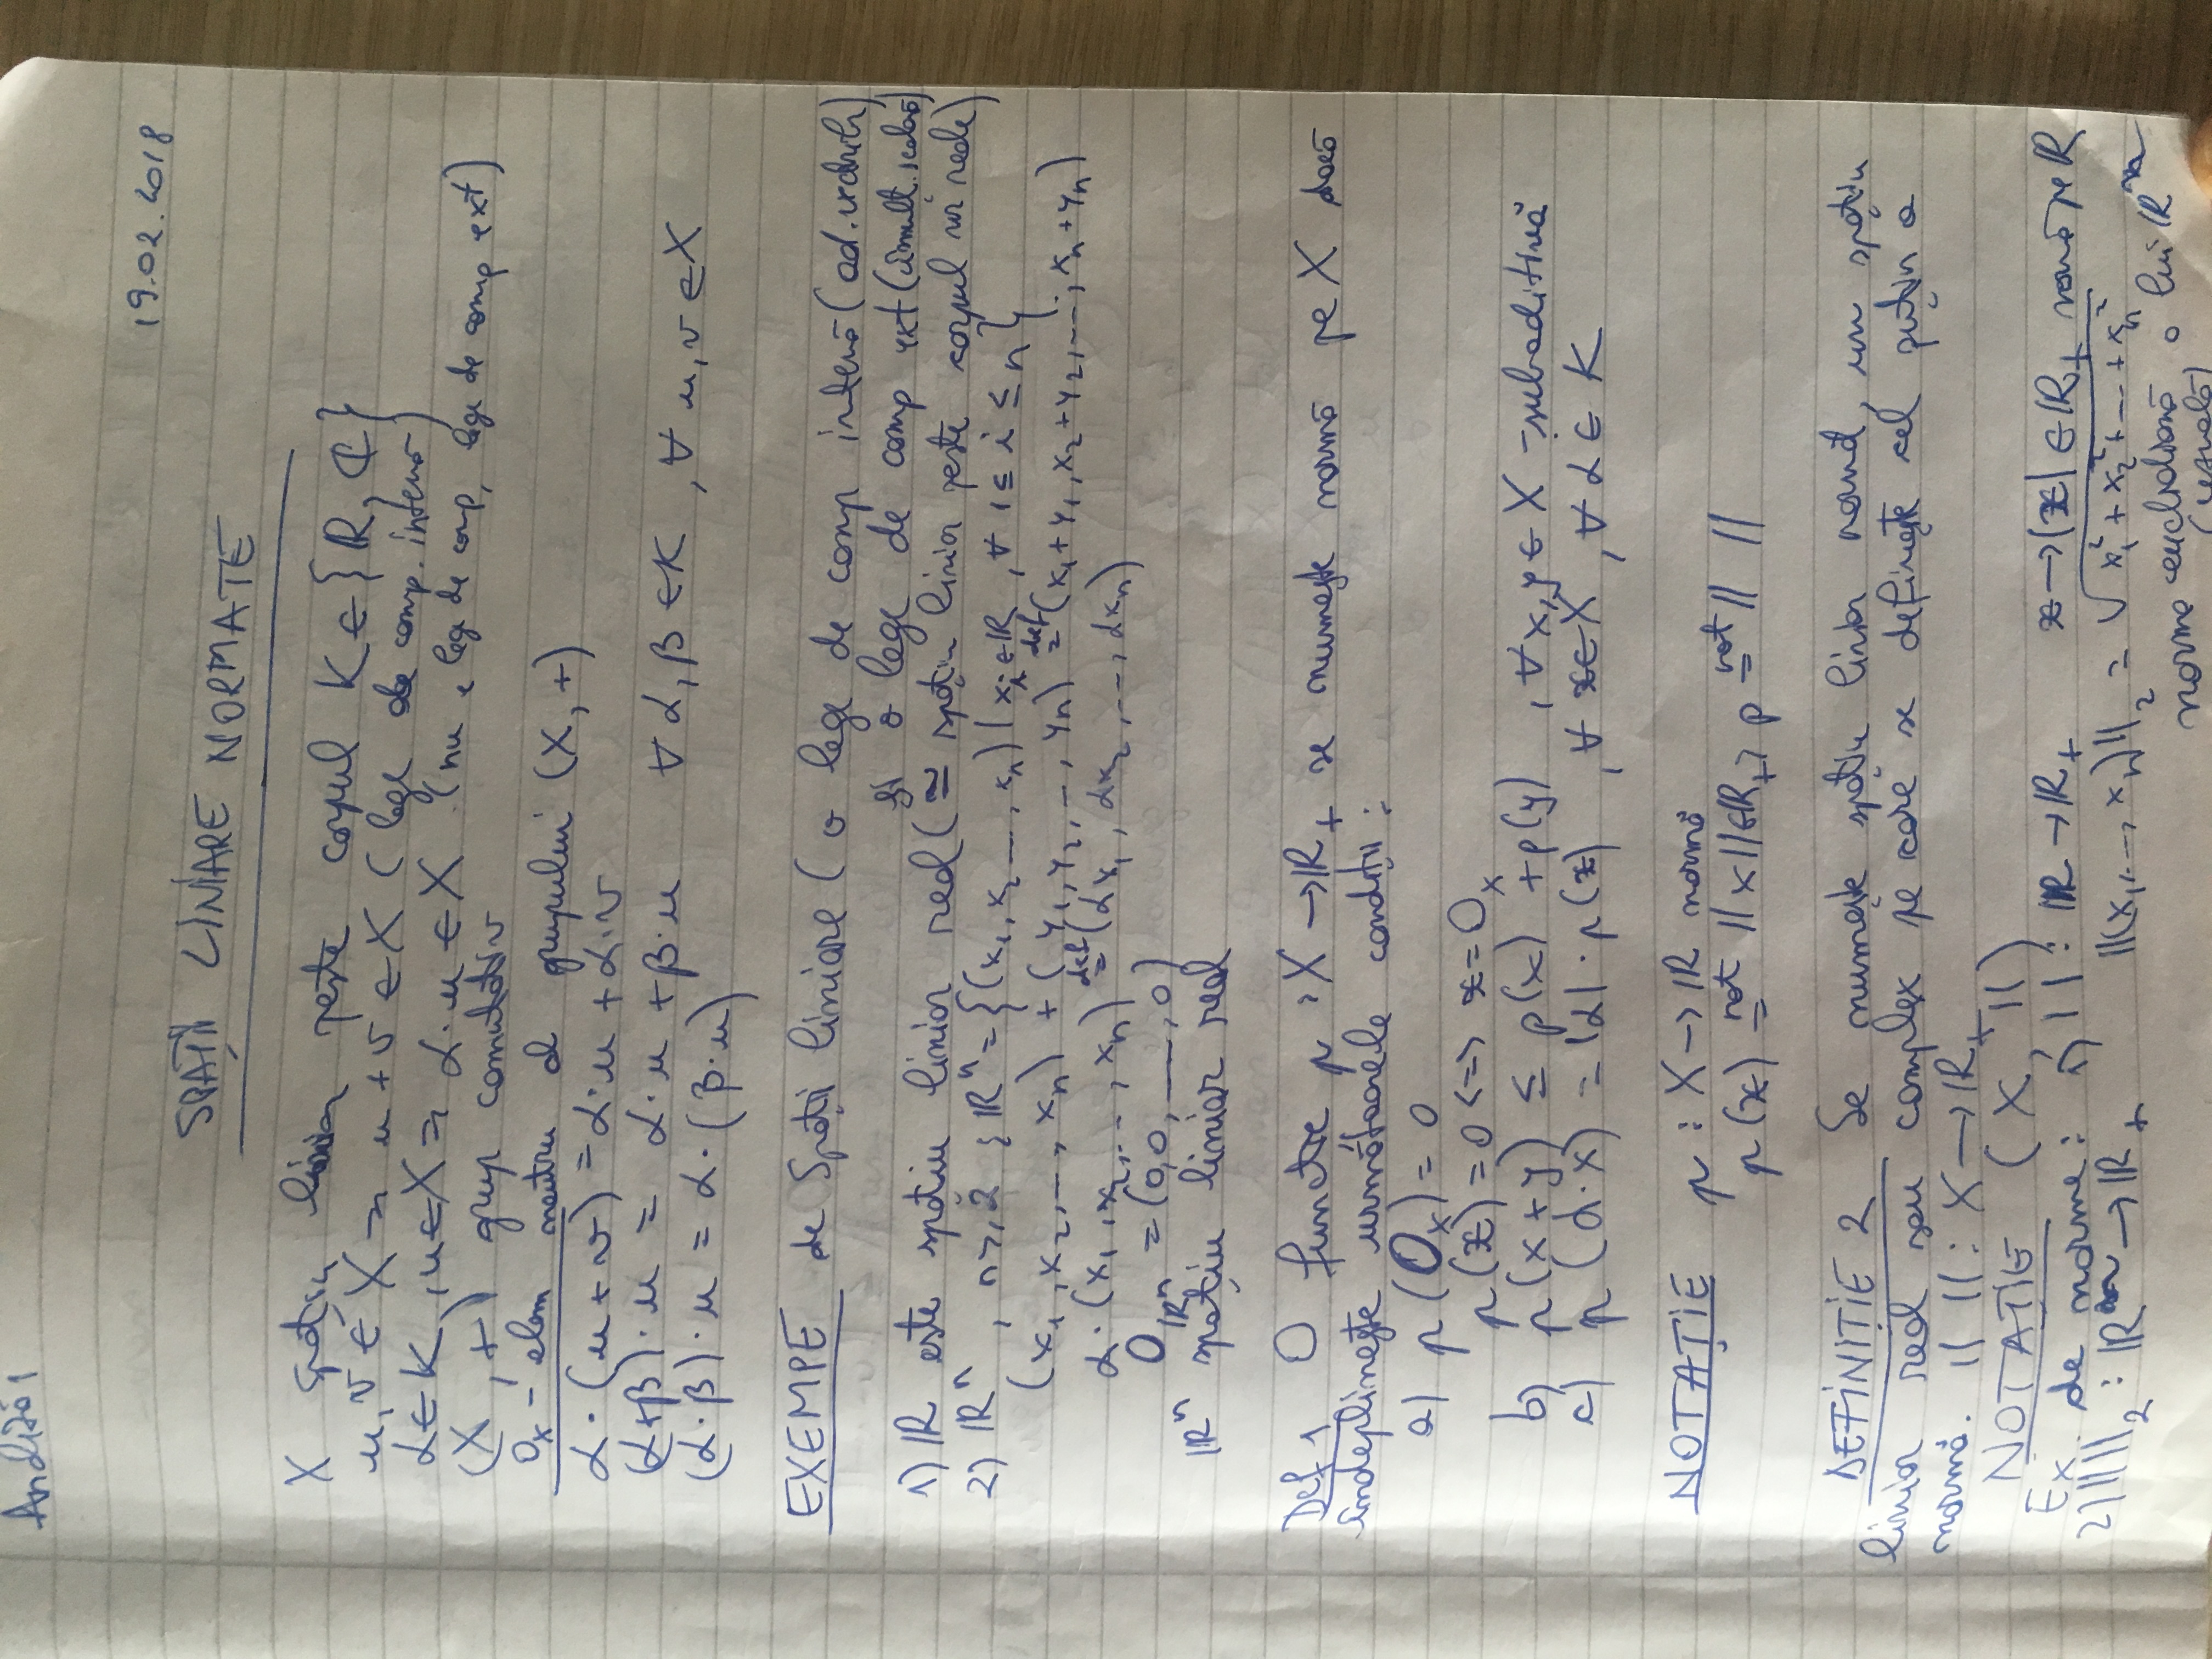 Analiză 1
19.02.2018
SPAȚII LINIARE NORMATE
X spațiu liniar peste corpul K ∈ {ℝ, ℂ}
u, v ∈ X ⇒ u + v ∈ X (lege de comp. internă)
α ∈ K, u ∈ X ⇒ α·u ∈ X (nu e lege de comp, lege de comp ext)
(X, +) grup comutativ
0ₓ - elem neutru al grupului (X, +)
α·(u+v) = α·u + α·v
(α+β)·u = α·u + β·u ∀ α, β ∈ K, ∀ u, v ∈ X
(α·β)·u = α·(β·u)
EXEMPE de Spații liniare (o lege de comp internă (ad. vectorilor)
și o lege de comp ext (înmulț. scalară)
1) ℝ este spațiu liniar real (≃ spațiu liniar peste corpul nr reale)
2) ℝⁿ, n ≥ 2 ; ℝⁿ = {(x₁, x₂ ..., xₙ) | xᵢ ∈ ℝ, ∀ 1 ≤ i ≤ n}
(x₁, x₂, ..., xₙ) + (y₁, y₂, ..., yₙ) =def (x₁+y₁, x₂+y₂, ..., xₙ+yₙ)
α·(x₁, x₂, ..., xₙ) =def (αx₁, αx₂, ..., αxₙ)
0_ℝⁿ = (0,0, ..., 0)
ℝⁿ spațiu liniar real
Def 1 O funcție p : X → ℝ₊ se numește normă pe X dacă
îndeplinește următoarele condiții :
a) p(0ₓ) = 0
p(x) = 0 <=> x = 0ₓ
b) p(x+y) ≤ p(x) + p(y) , ∀ x, y ∈ X - subaditivă
c) p(α·x) = |α|·p(x) , ∀ x ∈ X , ∀ α ∈ K
NOTAȚIE p : X → ℝ normă
p(x) =not ||x|| ∈ ℝ₊, p =not || ||
DEFINIȚIE 2 Se numește spațiu liniar normat, un spațiu
liniar real sau complex pe care se definește cel puțin o
normă. || || : X → ℝ₊
NOTAȚIE (X, ||)
Ex. de norme : 1) | | : ℝ → ℝ₊ x → |x| ∈ ℝ₊ normă pe ℝ
2) || ||₂ : ℝⁿ → ℝ₊ ||(x₁, ..., xₙ)||₂ = √(x₁² + x₂² + ... + xₙ²)
norma euclidiană a lui ℝⁿ
(uzuală)